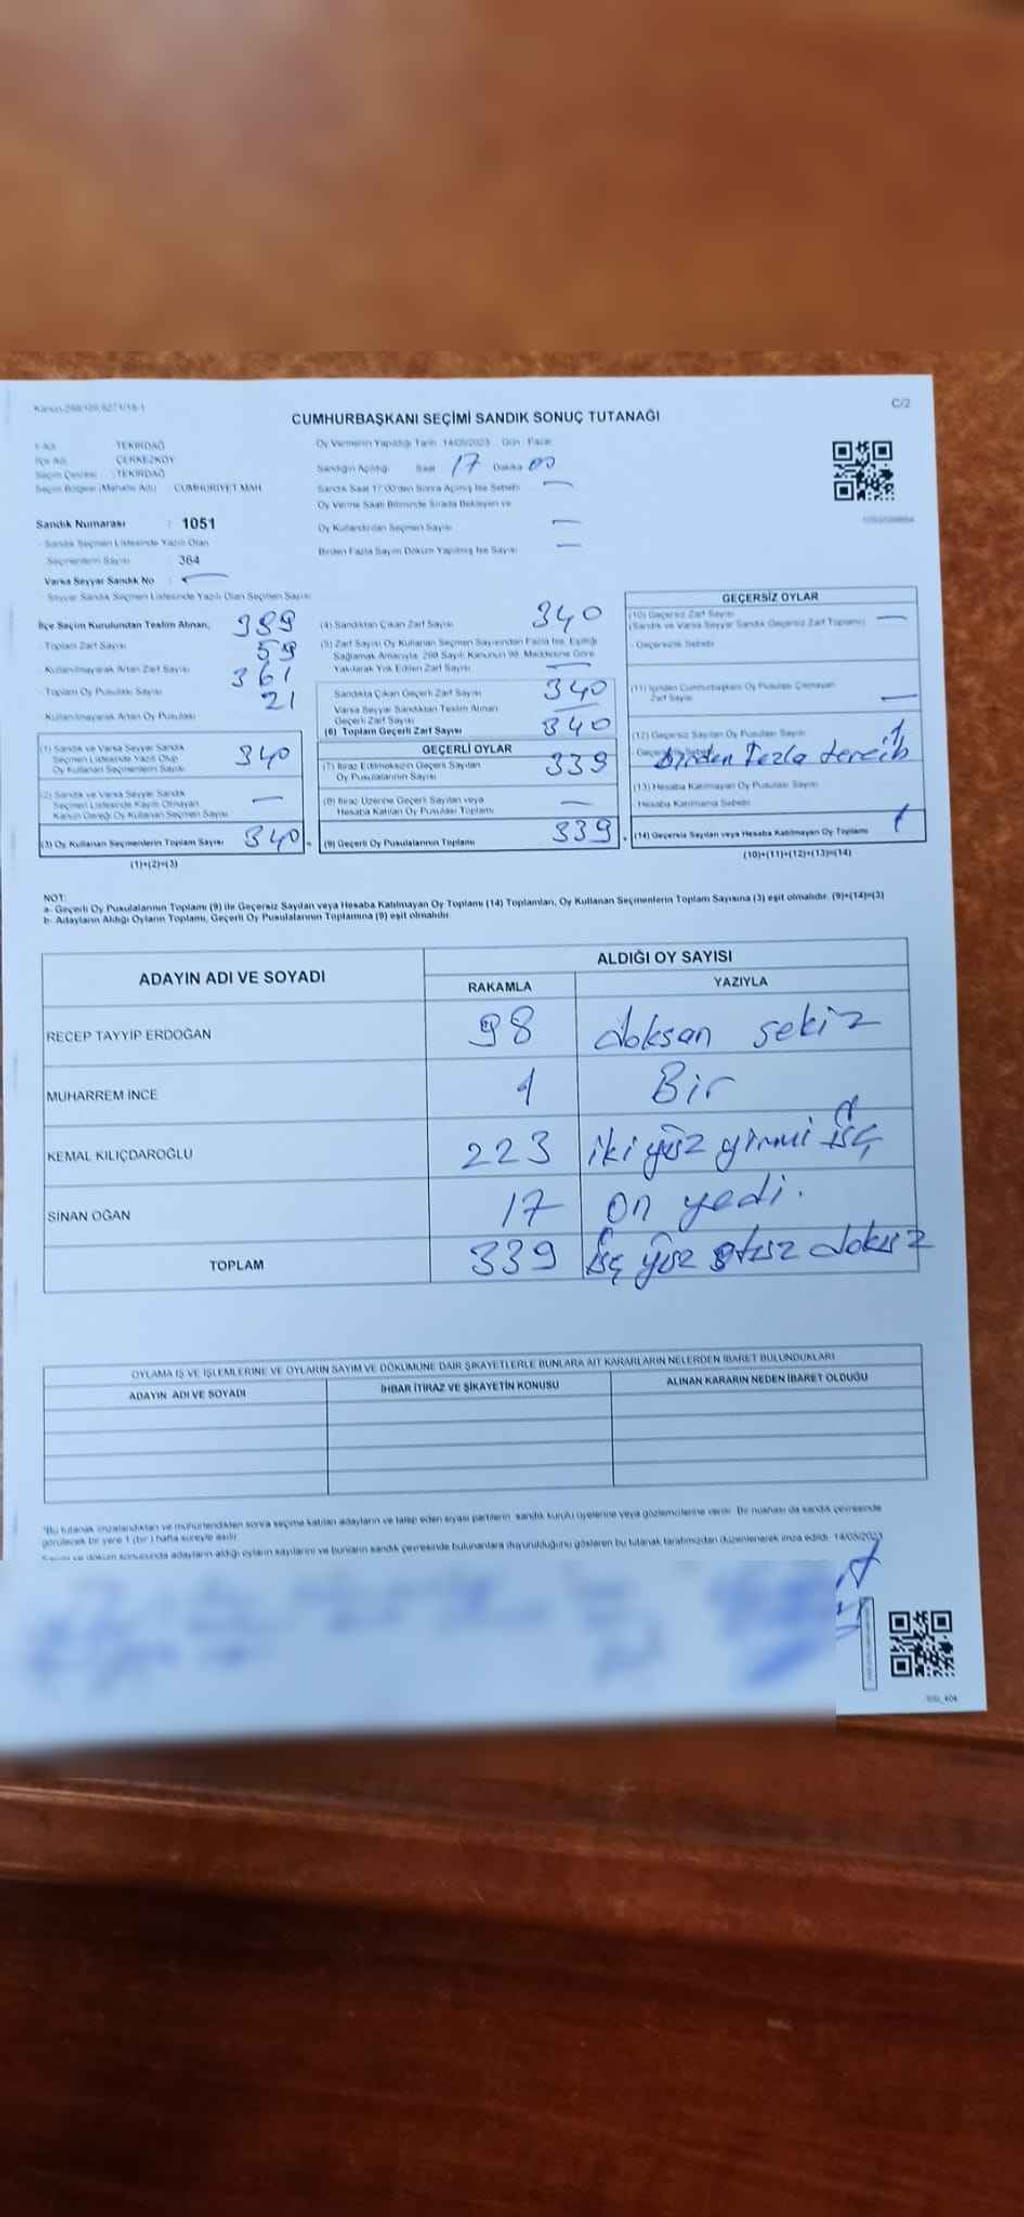 CUMHURBAŞKANI SEÇİMİ SANDIK SONUÇ TUTANAĞI
C/2
İl Adı TEKİRDAĞ
İlçe Adı ÇERKEZKÖY
Seçim Çevresi : TEKİRDAĞ
Seçim Bölgesi (Mahalle Adı) CUMHURİYET MAH.
Sandık Numarası : 1051
Sandık Seçmen Listesinde Yazılı Olan
Seçmenlerin Sayısı : 364
Varsa Seyyar Sandık No : —
Seyyar Sandık Seçmen Listesinde Yazılı Olan Seçmen Sayısı
Oy Vermenin Yapıldığı Tarih 14/05/2023 Gün: Pazar
Sandığın Açıldığı Saat 17 Dakika 00
Sandık Saat 17:00'den Sonra Açılmış İse Sebebi —
Oy Verme Saati Bitiminde Sırada Bekleyen ve
Oy Kullandırılan Seçmen Sayısı —
Birden Fazla Sayım Döküm Yapılmış İse Sayısı —
İlçe Seçim Kurulundan Teslim Alınan,
Toplam Zarf Sayısı 399
Kullanılmayarak Artan Zarf Sayısı 59
Toplam Oy Pusulası Sayısı 361
Kullanılmayarak Artan Oy Pusulası 21
(1) Sandık ve Varsa Seyyar Sandık
Seçmen Listesinde Yazılı Olup
Oy Kullanan Seçmenlerin Sayısı 340
(2) Sandık ve Varsa Seyyar Sandık
Seçmen Listesinde Kayıtlı Olmayan
Kanun Gereği Oy Kullanan Seçmen Sayısı —
(3) Oy Kullanan Seçmenlerin Toplam Sayısı 340
(1)+(2)=(3)
(4) Sandıktan Çıkan Zarf Sayısı 340
(5) Zarf Sayısı Oy Kullanan Seçmen Sayısından Fazla İse, Eşitliği
Sağlamak Amacıyla 298 Sayılı Kanunun 98. Maddesine Göre
Yakılarak Yok Edilen Zarf Sayısı —
Sandıkta Çıkan Geçerli Zarf Sayısı 340
Varsa Seyyar Sandıktan Teslim Alınan
Geçerli Zarf Sayısı —
(6) Toplam Geçerli Zarf Sayısı 340
GEÇERLİ OYLAR
(7) İtiraz Edilmeksizin Geçerli Sayılan
Oy Pusulalarının Sayısı 339
(8) İtiraz Üzerine Geçerli Sayılan veya
Hesaba Katılan Oy Pusulası Toplamı —
(9) Geçerli Oy Pusulalarının Toplamı 339
GEÇERSİZ OYLAR
(10) Geçersiz Zarf Sayısı
(Sandık ve Varsa Seyyar Sandık Geçersiz Zarf Toplamı) —
Geçersizlik Sebebi
(11) İçinden Cumhurbaşkanı Oy Pusulası Çıkmayan
Zarf Sayısı —
(12) Geçersiz Sayılan Oy Pusulası Sayısı 1
Birden Fazla tercih
(13) Hesaba Katılmayan Oy Pusulası Sayısı
Hesaba Katılmama Sebebi
(14) Geçersiz Sayılan veya Hesaba Katılmayan Oy Toplamı 1
(10)+(11)+(12)+(13)=(14)
NOT:
a- Geçerli Oy Pusulalarının Toplamı (9) ile Geçersiz Sayılan veya Hesaba Katılmayan Oy Toplamı (14) Toplamları, Oy Kullanan Seçmenlerin Toplam Sayısına (3) eşit olmalıdır. (9)+(14)=(3)
b- Adayların Aldığı Oyların Toplamı, Geçerli Oy Pusulalarının Toplamına (9) eşit olmalıdır.
ADAYIN ADI VE SOYADI
ALDIĞI OY SAYISI
RAKAMLA YAZIYLA
RECEP TAYYİP ERDOĞAN 98 doksan sekiz
MUHARREM İNCE 1 Bir
KEMAL KILIÇDAROĞLU 223 iki yüz yirmi üç
SİNAN OĞAN 17 on yedi.
TOPLAM 339 üç yüz otuz dokuz
OYLAMA İŞ VE İŞLEMLERİNE VE OYLARIN SAYIM VE DÖKÜMÜNE DAİR ŞİKAYETLERLE BUNLARA AİT KARARLARIN NELERDEN İBARET BULUNDUKLARI
ADAYIN ADI VE SOYADI İHBAR İTİRAZ VE ŞİKAYETİN KONUSU ALINAN KARARIN NEDEN İBARET OLDUĞU
*Bu tutanak imzalandıktan ve mühürlendikten sonra seçime katılan adayların ve talep eden siyasi partilerin sandık kurulu üyelerine veya gözlemcilerine verilir. Bir nüshası da sandık çevresinde
görülecek bir yere 1 (bir) hafta süreyle asılır.
Seçim ve döküm sonucunda adayların aldığı oyların sayılarını ve bunların sandık çevresinde bulunanlara duyurulduğunu gösteren bu tutanak tarafımızdan düzenlenerek imza edildi. 14/05/2023